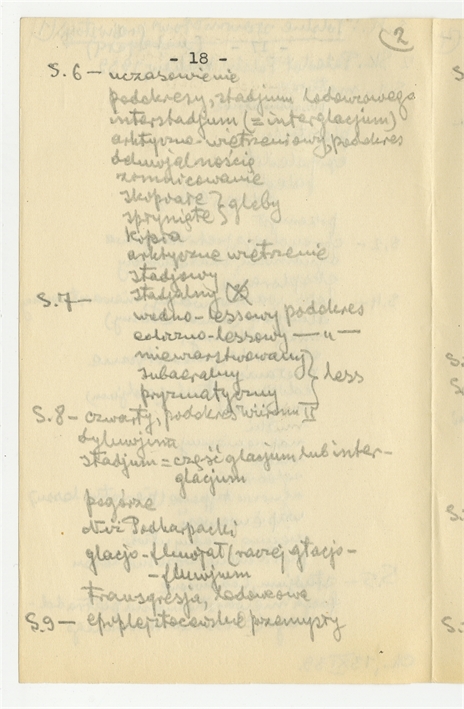 2
- 18 -
S. 6 - uczasowienie
podokresy, stadjum lodowcowego
interstadjum (= interglacjum)
arktyczno-wietrzeniowy, podokres
odwojalnością
zamarzowanie
skopiare } gleby
spłynięte }
kopra
arktyczne wietrzenie
stadjowy
S. 7 - stadjalny
wodno-lessowy podokres
eoliczno-lessowy — " —
niewarstwowany }
subaeralny } less
pryzmatyczny }
S. 8 - czwarty, podokres würmu II
dyluwjum
stadjum = część glacjum lub inter-
glacjum
pogórze
Niż Podkarpacki
glacjo-fluwjał (raczej glacjo-
-fluwjum
transgresja, lodowcowe
S. 9 - epoplejstoceńskie przemysły